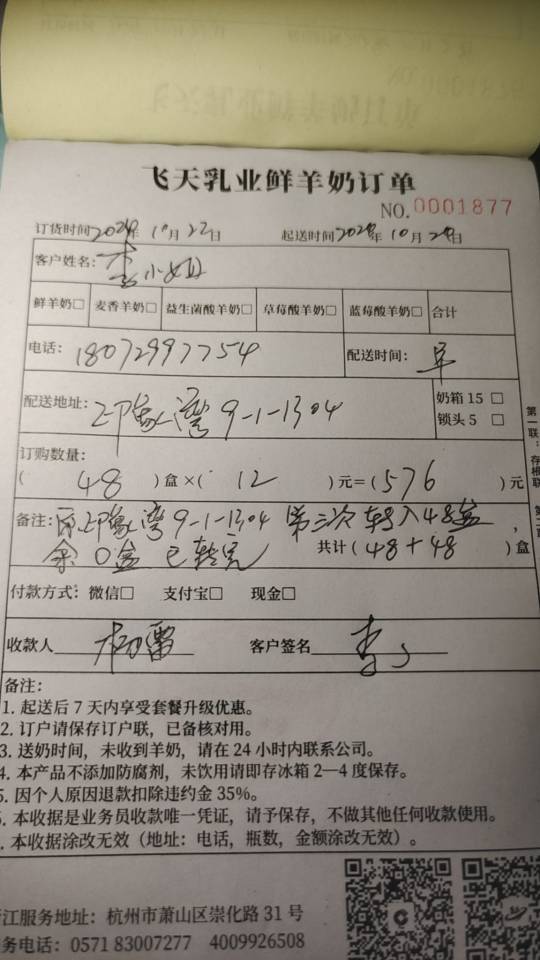 飞天乳业鲜羊奶订单
NO.0001877
订货时间2024年10月22日 起送时间2024年10月24日
客户姓名：李小姐
鲜羊奶□ 麦香羊奶□ 益生菌酸羊奶□ 草莓酸羊奶□ 蓝莓酸羊奶□ 合计
电话：18072997754 配送时间：早
配送地址：印象湾9-1-1304 奶箱 15 □
锁头 5 □
订购数量：
（48）盒×（12）元=（576）元
备注：原印象湾9-1-1304 第三次转入48盒，
余0盒 已转完 共计（48+48）盒
付款方式：微信□ 支付宝□ 现金□
收款人 杨雷 客户签名 李
备注：
1. 起送后 7 天内享受套餐升级优惠。
2. 订户请保存订户联，已备核对用。
3. 送奶时间，未收到羊奶，请在 24 小时内联系公司。
4. 本产品不添加防腐剂，未饮用请即存冰箱 2—4 度保存。
5. 因个人原因退款扣除违约金 35%。
本收据是业务员收款唯一凭证，请予保存，不做其他任何收款使用。
本收据涂改无效（地址：电话，瓶数，金额涂改无效）。
江服务地址：杭州市萧山区崇化路 31 号
务电话：0571 83007277 4009926508
第一联：存根联